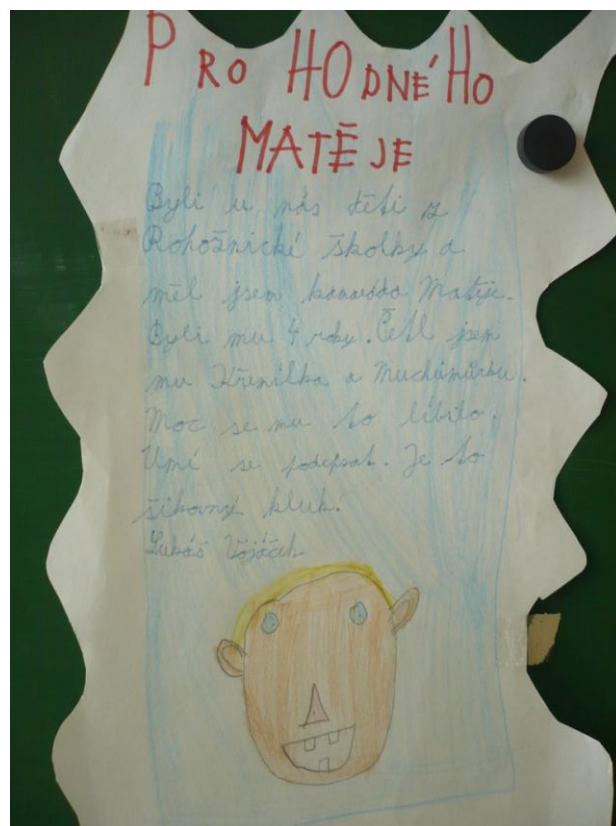 PRO HODNÉHO
MATĚJE
Byli u nás děti z
Rohožnické školky a
měl jsem kamaráda Matěje.
Byli mu 4 roky. Četl jsem
mu Křemílka a Muchůmůrku.
Moc se mu to líbilo.
Umí se podepsat. Je to
šikovný kluk!
Lukáš